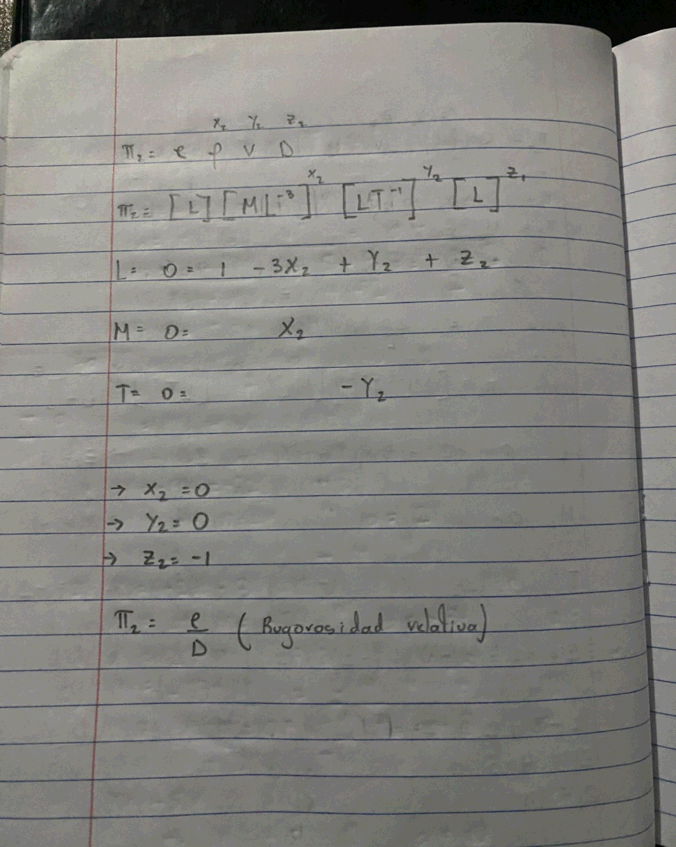 x₂ y₂ z₂
π₂ = e ρ v D
π₂ = [L] [ML⁻³]^x₂ [LT⁻¹]^y₂ [L]^z₁
L = 0 = 1 - 3x₂ + y₂ + z₂
M = 0 = x₂
T = 0 = - y₂
→ x₂ = 0
→ y₂ = 0
→ z₂ = -1
π₂ = e/D (Rugorosidad relativa)